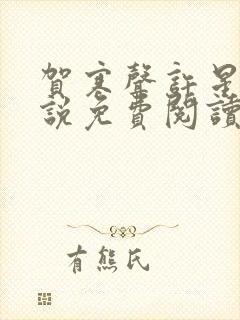 賀寒聲許星
說免費閱讀
有熊氏